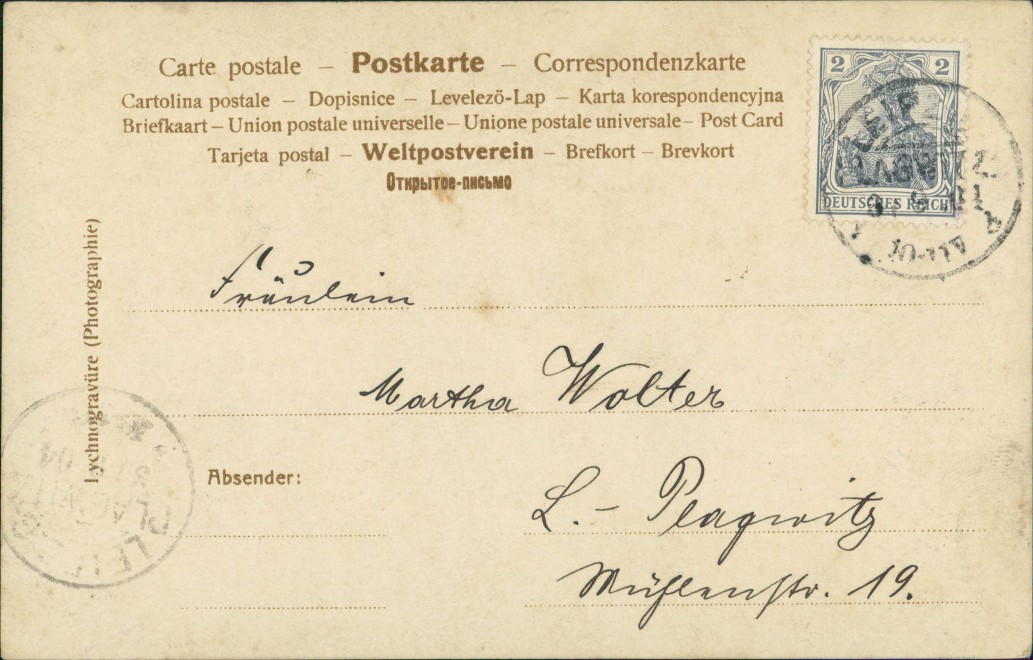 Carte postale – Postkarte – Correspondenzkarte
Cartolina postale – Dopisnice – Levelező-Lap – Karta korespondencyjna
Briefkaart – Union postale universelle – Unione postale universale – Post Card
Tarjeta postal – Weltpostverein – Brefkort – Brevkort
Открытое-письмо
2 2
DEUTSCHES REICH
10-11V
Lychnogravüre (Photographie)
Fräulein
Martha Wolter
Absender:
L.- Plagwitz
Mühlenstr. 19.